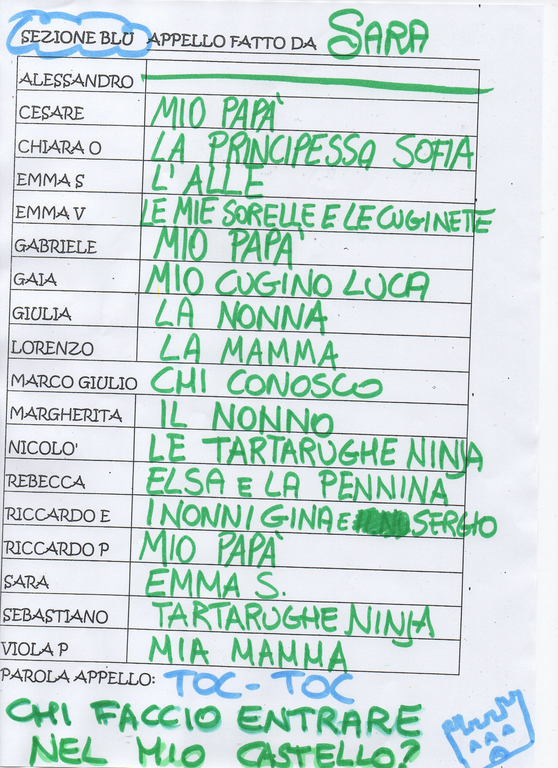 SEZIONE BLU APPELLO FATTO DA SARA
ALESSANDRO
CESARE MIO PAPÀ
CHIARA O LA PRINCIPESSA SOFIA
EMMA S L'ALLE
EMMA V LE MIE SORELLE E LE CUGINETTE
GABRIELE MIO PAPA'
GAIA MIO CUGINO LUCA
GIULIA LA NONNA
LORENZO LA MAMMA
MARCO GIULIO CHI CONOSCO
MARGHERITA IL NONNO
NICOLO' LE TARTARUGHE NINJA
REBECCA ELSA E LA PENNINA
RICCARDO E I NONNI GINA E SERGIO
RICCARDO P MIO PAPÀ
SARA EMMA S.
SEBASTIANO TARTARUGHE NINJA
VIOLA P MIA MAMMA
PAROLA APPELLO: TOC-TOC
CHI FACCIO ENTRARE
NEL MIO CASTELLO?